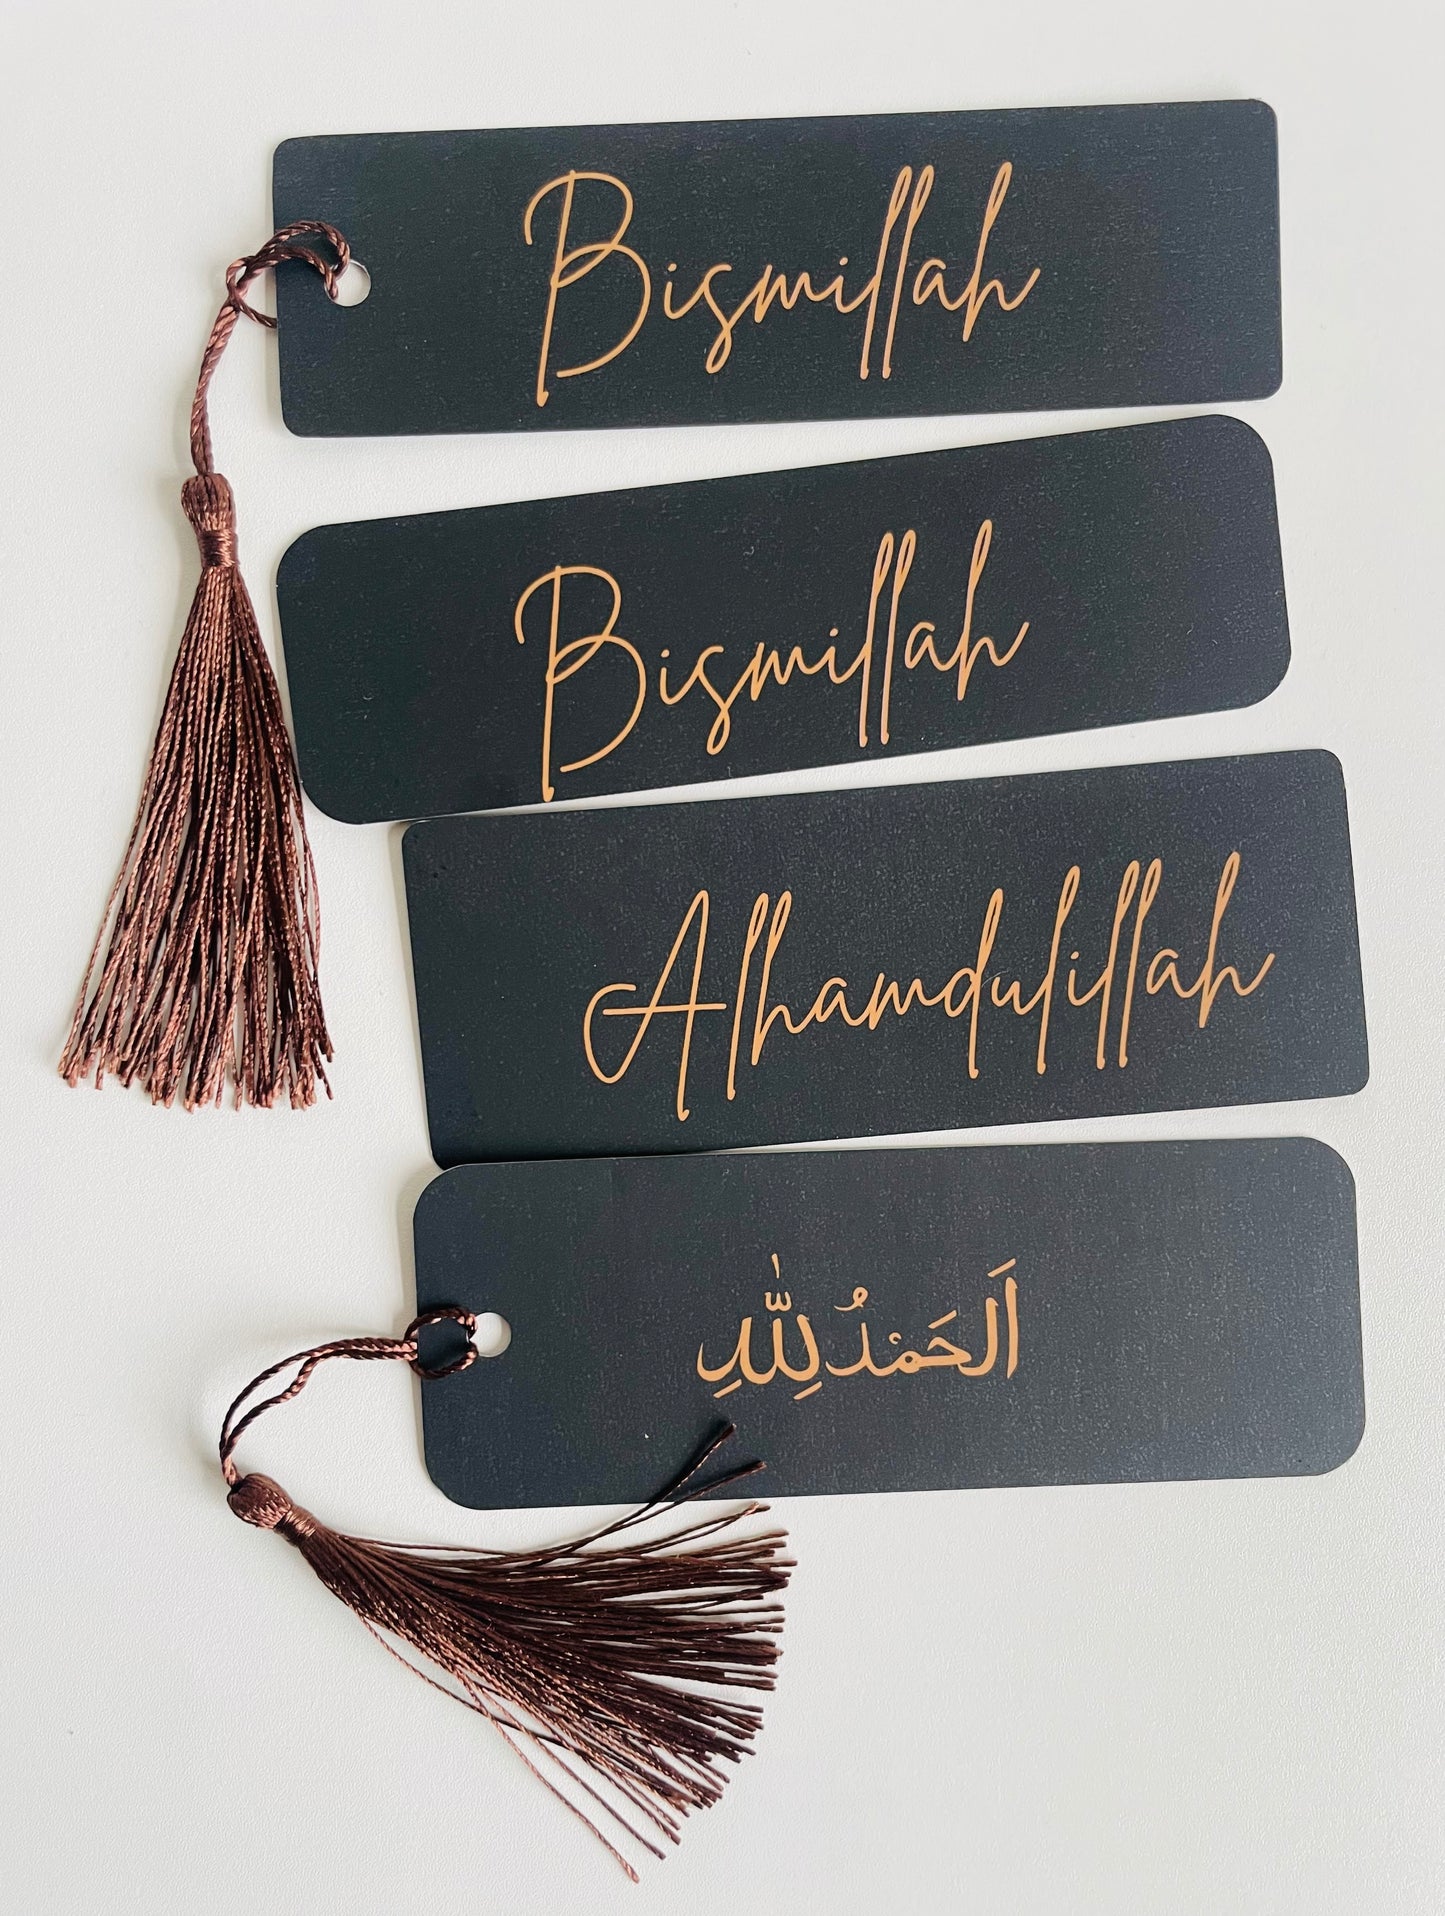 Bismillah
Bismillah
Alhamdulillah
اَلحَمْدُلِلّٰهِ